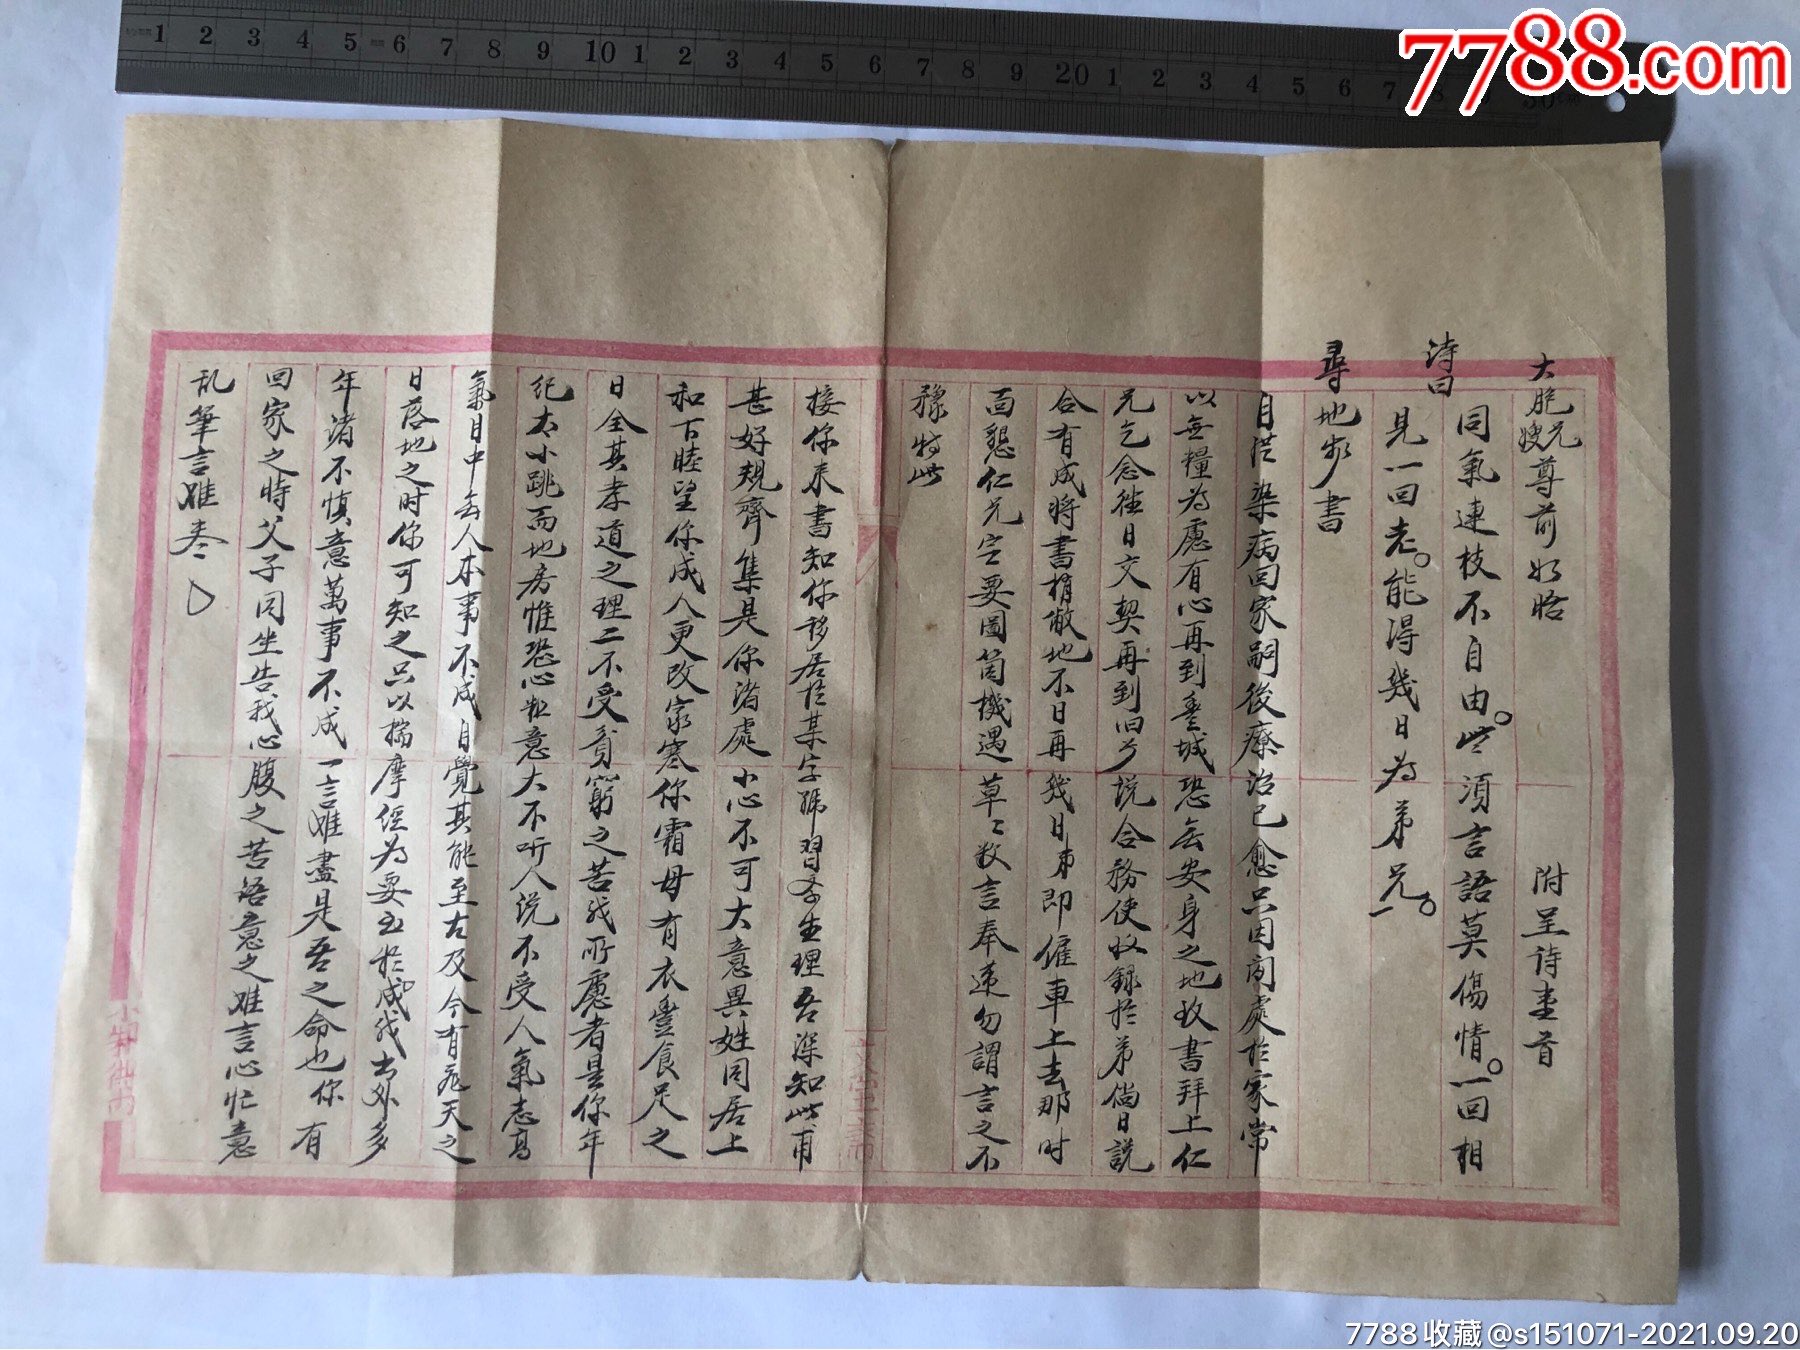 1 2 3 4 5 6 7 8 9 10 1 2 3 4 5 6 7 8 9 20 1 2 3 4 5 6 7
7788.com
大胞兄嫂尊前如晤 附呈诗壹首
同氣連枝不自由。些須言語莫傷情。一回相
诗曰
見一回老。能得幾日為弟兄。
尋地步書
自從染病回家嗣後療治已愈只因閑處於家常
以無糧為慮有心再到臺城恐無安身之地玫書拜上仁
兄乞念往日文契再到旧乡説合務使收録於弟倘日説
合有成將書捎敝地不日再幾日弟即僱車上去那时
面懇仁兄定要圖箇機遇草々数言奉達勿謂言之不
豫特此
接你来書知你移居於某字號習學生理吾深知此甫
甚好規齊集是你渚處小心不可大意異姓同居上
和下睦望你成人更改家寒你霜母有衣豐食足之
日全其孝道之理二不受貧窮之苦我所慮者是你年
纪太小跳而地房惟恐心粗意大不听人说不受人氣志高
氣目中無人本事不成自覺其能至古及今有死天之
日落地之时你可知之只以揣摩經為要玉於成我出外多
年渚不慎意萬事不成一言难盡是吾之命也你有
回家之時父子同坐告我心腹之苦语意之难言心忙意
乱筆言难表
7788收藏@s151071-2021.09.20